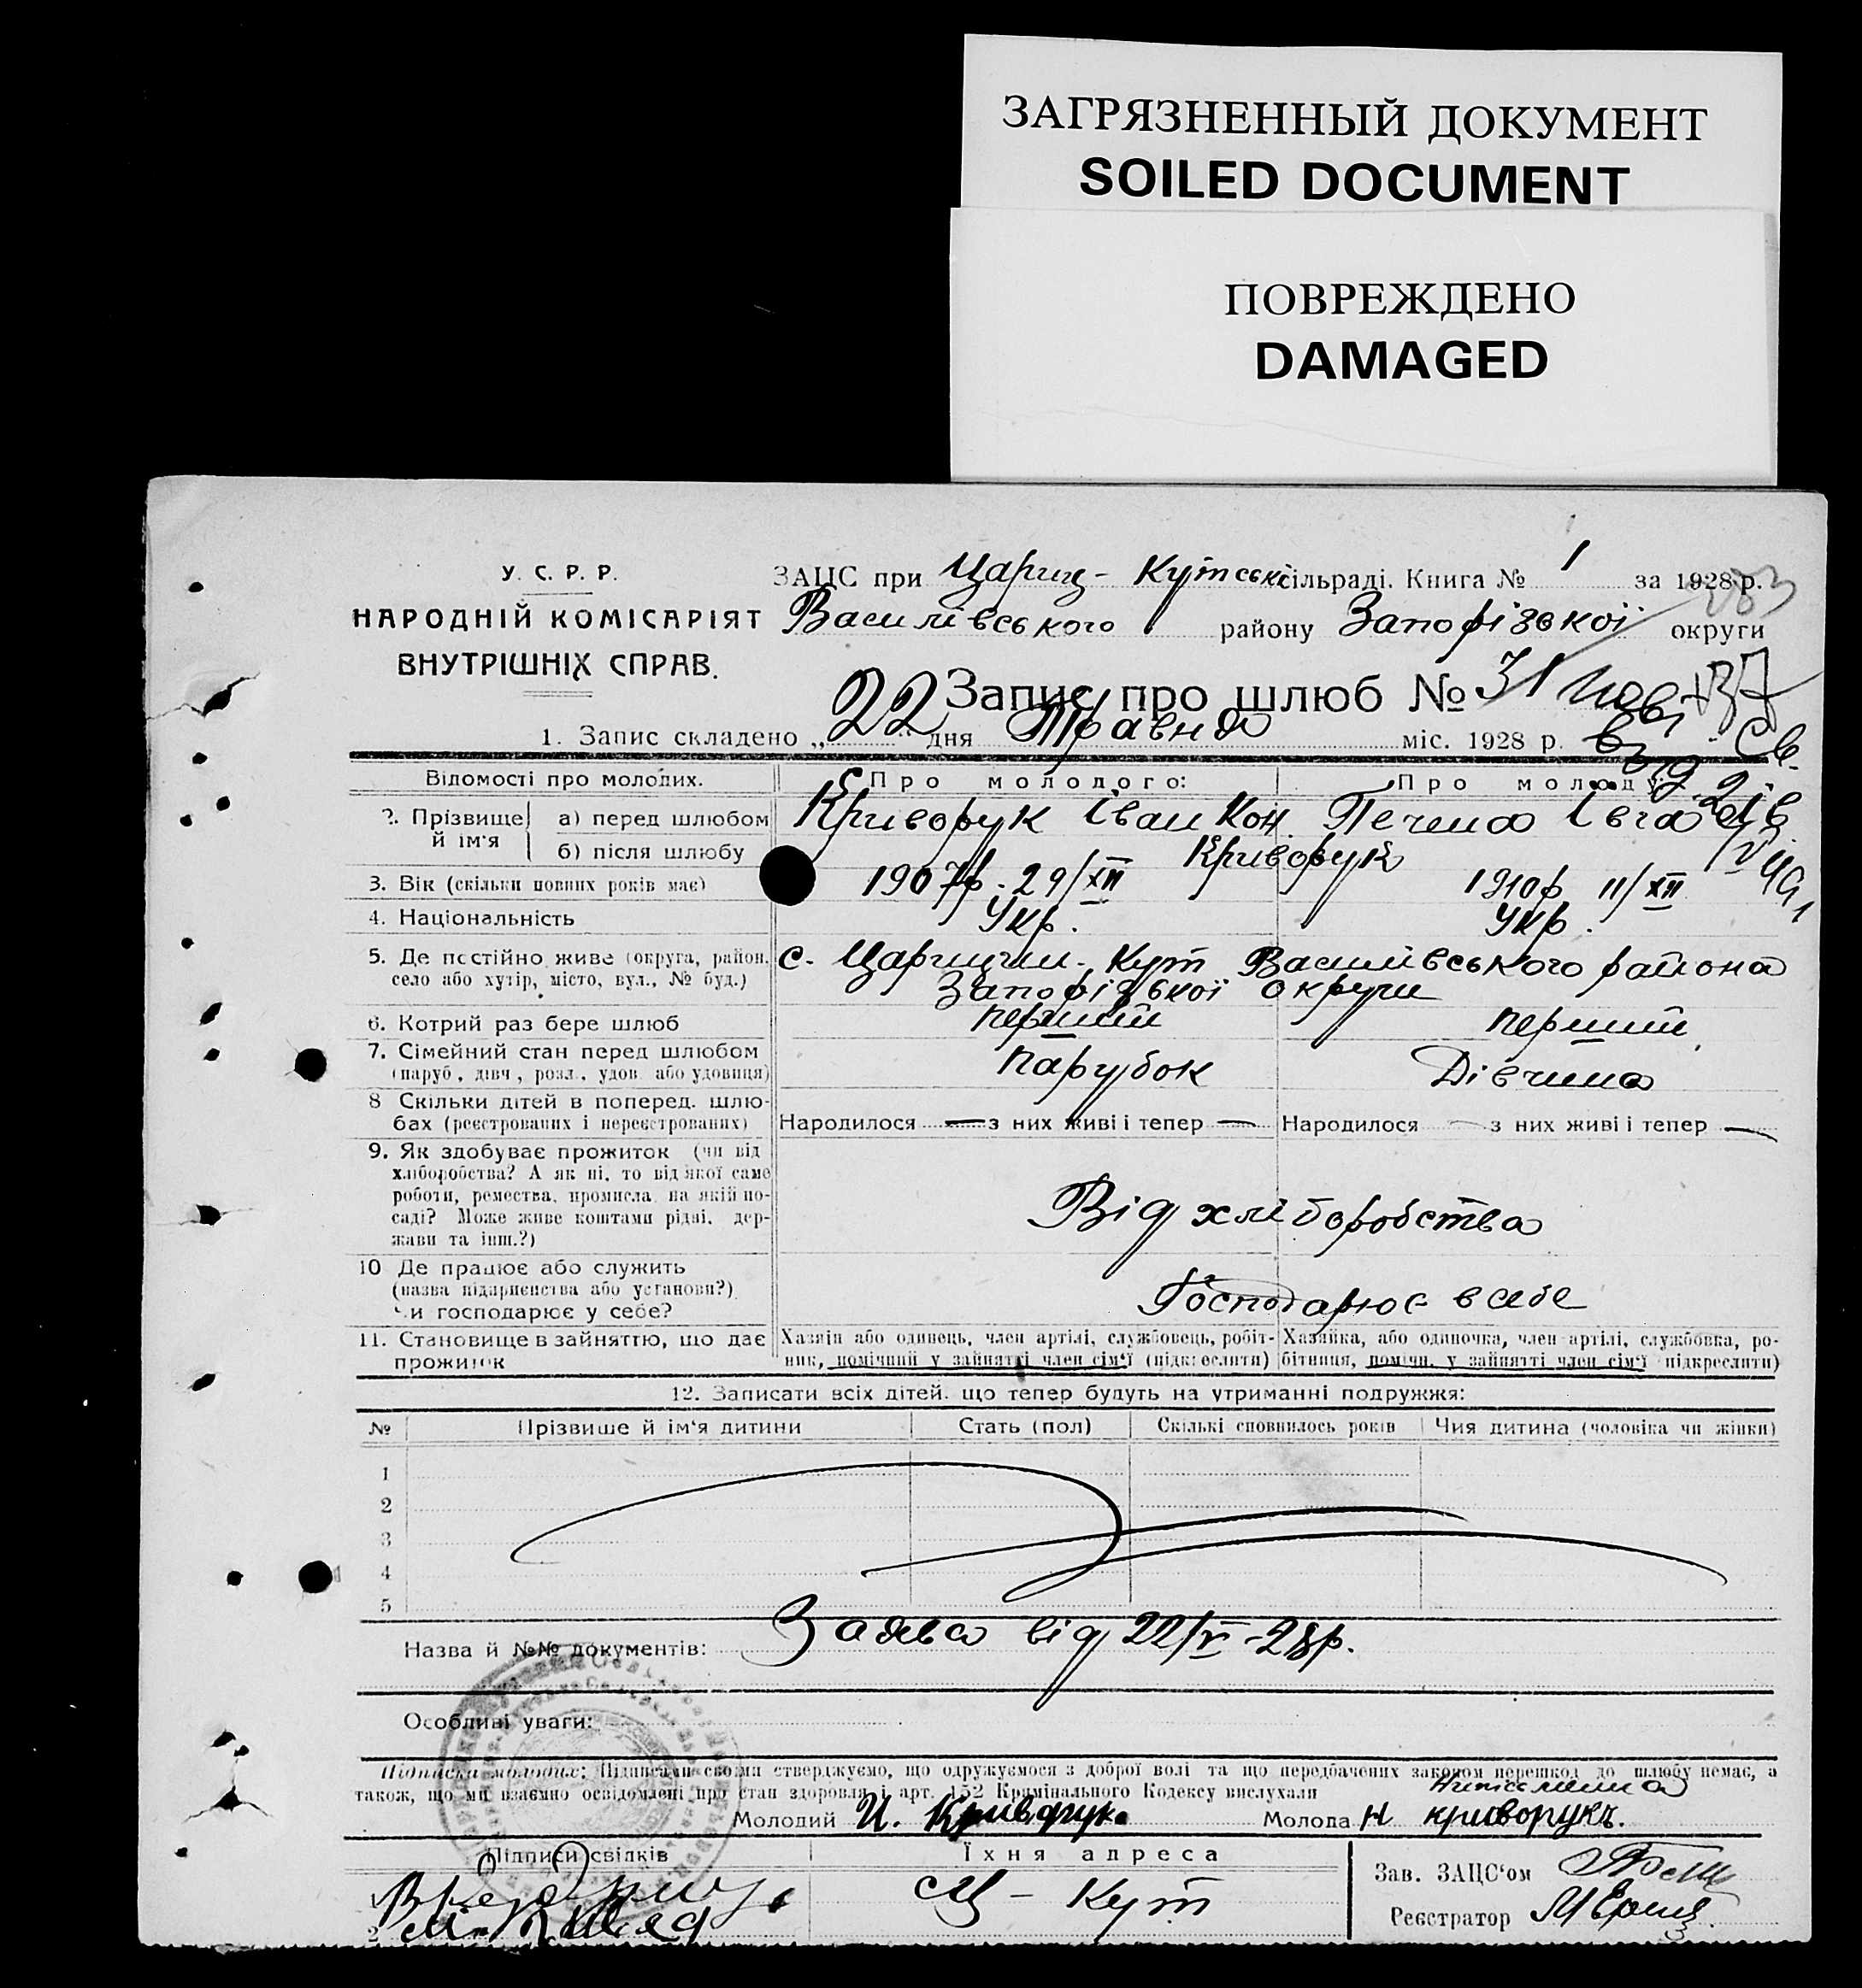 ЗАГРЯЗНЕННЫЙ ДОКУМЕНТ
SOILED DOCUMENT
ПОВРЕЖДЕНО
DAMAGED
У. С. Р. Р.
НАРОДНІЙ КОМІСАРІЯТ
ВНУТРІШНІХ СПРАВ.
ЗАЦС при Цариц-Кутській сільраді. Книга № 1 за 1928 р.
Василівського району Запорізької округи
Запис про шлюб № 31
1. Запис складено „22" дня Травня міс. 1928 р.
Відомості про молодих. Про молодого: Про молоду:
2. Прізвище й ім'я
а) перед шлюбом Криворук Іван Кон. Печена Івга
б) після шлюбу Криворук
3. Вік (скільки повних років має) 1907р. 29/XII 1910р 11/XII
4. Національність Укр. Укр.
5. Де постійно живе (округа, район, с. Царицин-Кут Василівського района
село або хутір, місто, вул., № буд.) Запорізької округи
6. Котрий раз бере шлюб перший перший
7. Сімейний стан перед шлюбом Парубок Дівчина
(паруб., дівч., розл., удов. або удовиця)
8 Скільки дітей в поперед. шлю-
бах (реєстрованих і нереєстрованих) Народилося — з них живі і тепер — Народилося — з них живі і тепер —
9. Як здобуває прожиток (чи від
хліборобства? А як ні, то від якої саме
роботи, ремества, промисла, на якій по- Від хліборобства
саді? Може живе коштами рідні, дер-
жави та інш.?)
10 Де працює або служить
(назва підприємства або установи?) Господарює в себе
чи господарює у себе?
11. Становище в зайняттю, що дає Хазяїн або одинець, член артілі, службовець, робіт- Хазяйка, або одиночка, член артілі, службовка, ро-
прожиток ник, помічний у зайнятті член сім'ї (підкреслити) бітниця, помічн. у зайнятті член сім'ї підкреслити)
12. Записати всіх дітей, що тепер будуть на утриманні подружжя:
№ Прізвище й ім'я дитини Стать (пол) Скількі сповнилось років Чия дитина (чоловіка чи жінки)
1
2
3
4
5
Назва й №№ документів: Заява від 22/V-28р.
Особливі уваги:
Підписка молодих: Підписами своїми стверджуємо, що одружуємося з доброї волі та що передбачених законом перешкод до шлюбу немає, а
також, що ми взаємно освідомлені про стан здоровля і арт. 152 Кримінального Кодексу вислухали
Молодий И. Криворук Молода Н криворукъ.
Підписи свідків Їхня адреса
Ц-Кут
Зав. ЗАЦС'ом
Реєстратор